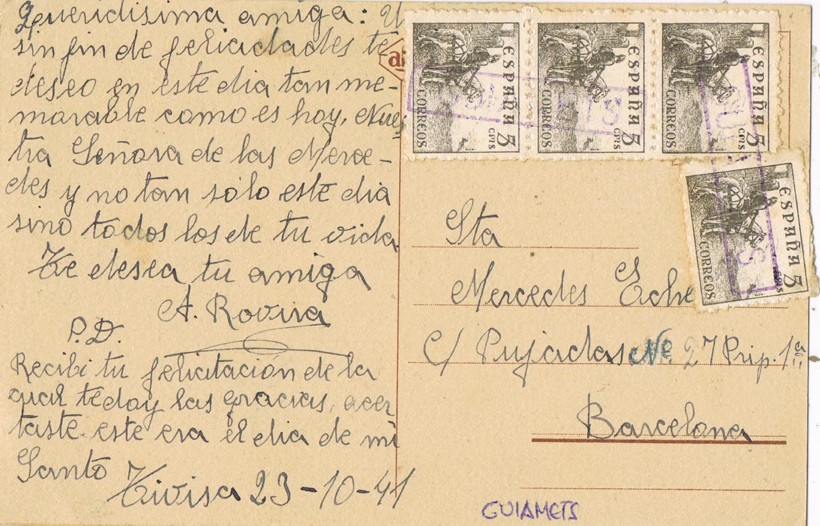 Queridisima amiga: U
sin fin de felicidades te
deseo en este dia tan me-
marable como es hoy, Nues
tra Señora de las Merce-
des y no tan solo este dia
sino todos los de tu vida
Te desea tu amiga
A. Rovira
P.D.
Recibi tu felicitación de la
qual te doy las gracias, acer
taste este era el dia de mi
Santo
Tivisa 23-10-41
ESPAÑA 5 CTMS
CORREOS
ESPAÑA 5 CTMS
CORREOS
ESPAÑA 5 CTMS
CORREOS
ESPAÑA 5 CTMS
CORREOS
Sta
Mercedes Eche
C/ Pujadas Nº 27 Prip. 1º
Barcelona
GUIAMETS